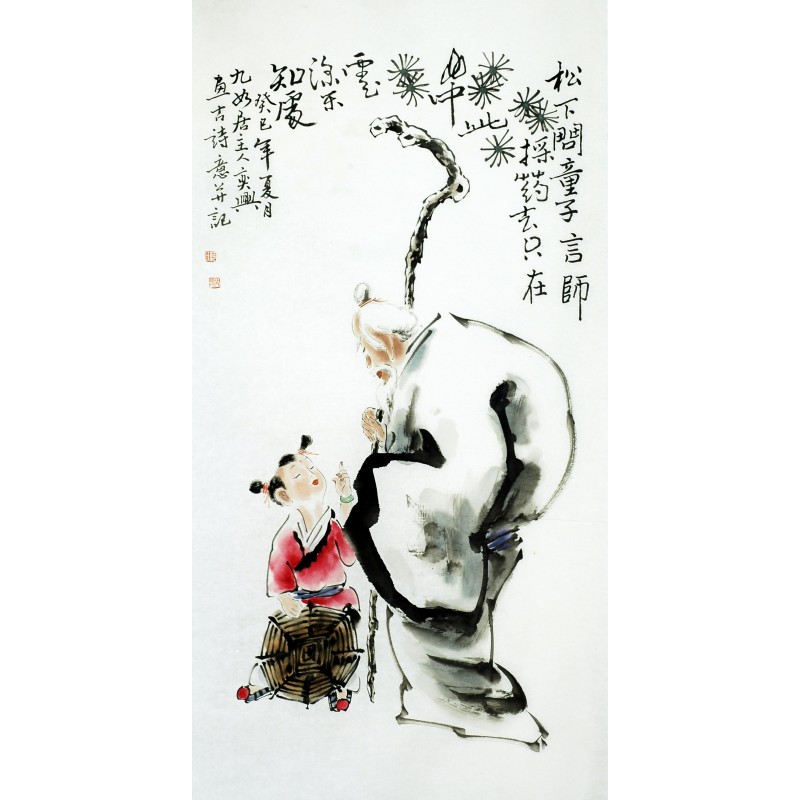 松下問童子言師
採药去只在
此
山中
雲
深不
知處
癸巳年夏月
九如居主人奕興
畫古詩意并記